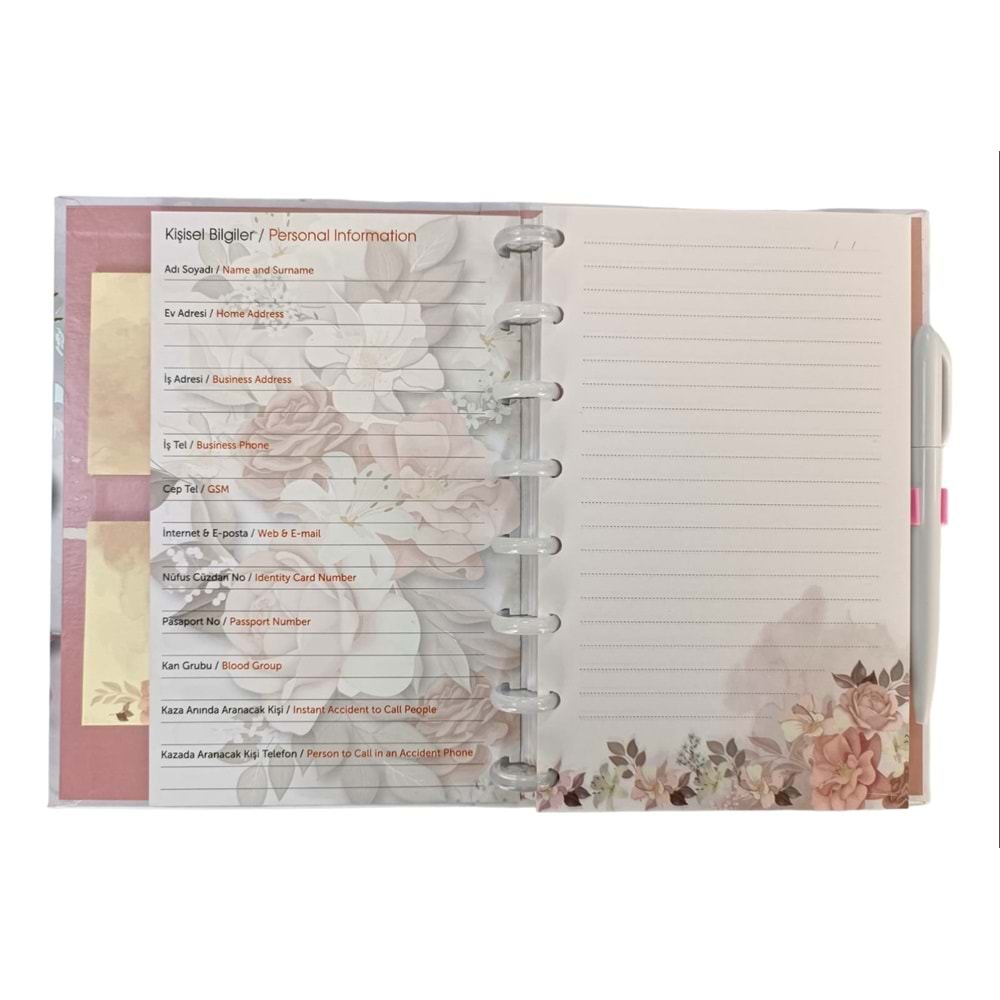 Kişisel Bilgiler / Personal Information
Adı Soyadı / Name and Surname
Ev Adresi / Home Address
İş Adresi / Business Address
İş Tel / Business Phone
Cep Tel / GSM
İnternet & E-posta / Web & E-mail
Nüfus Cüzdan No / Identity Card Number
Pasaport No / Passport Number
Kan Grubu / Blood Group
Kaza Anında Aranacak Kişi / Instant Accident to Call People
Kazada Aranacak Kişi Telefon / Person to Call in an Accident Phone
/ /